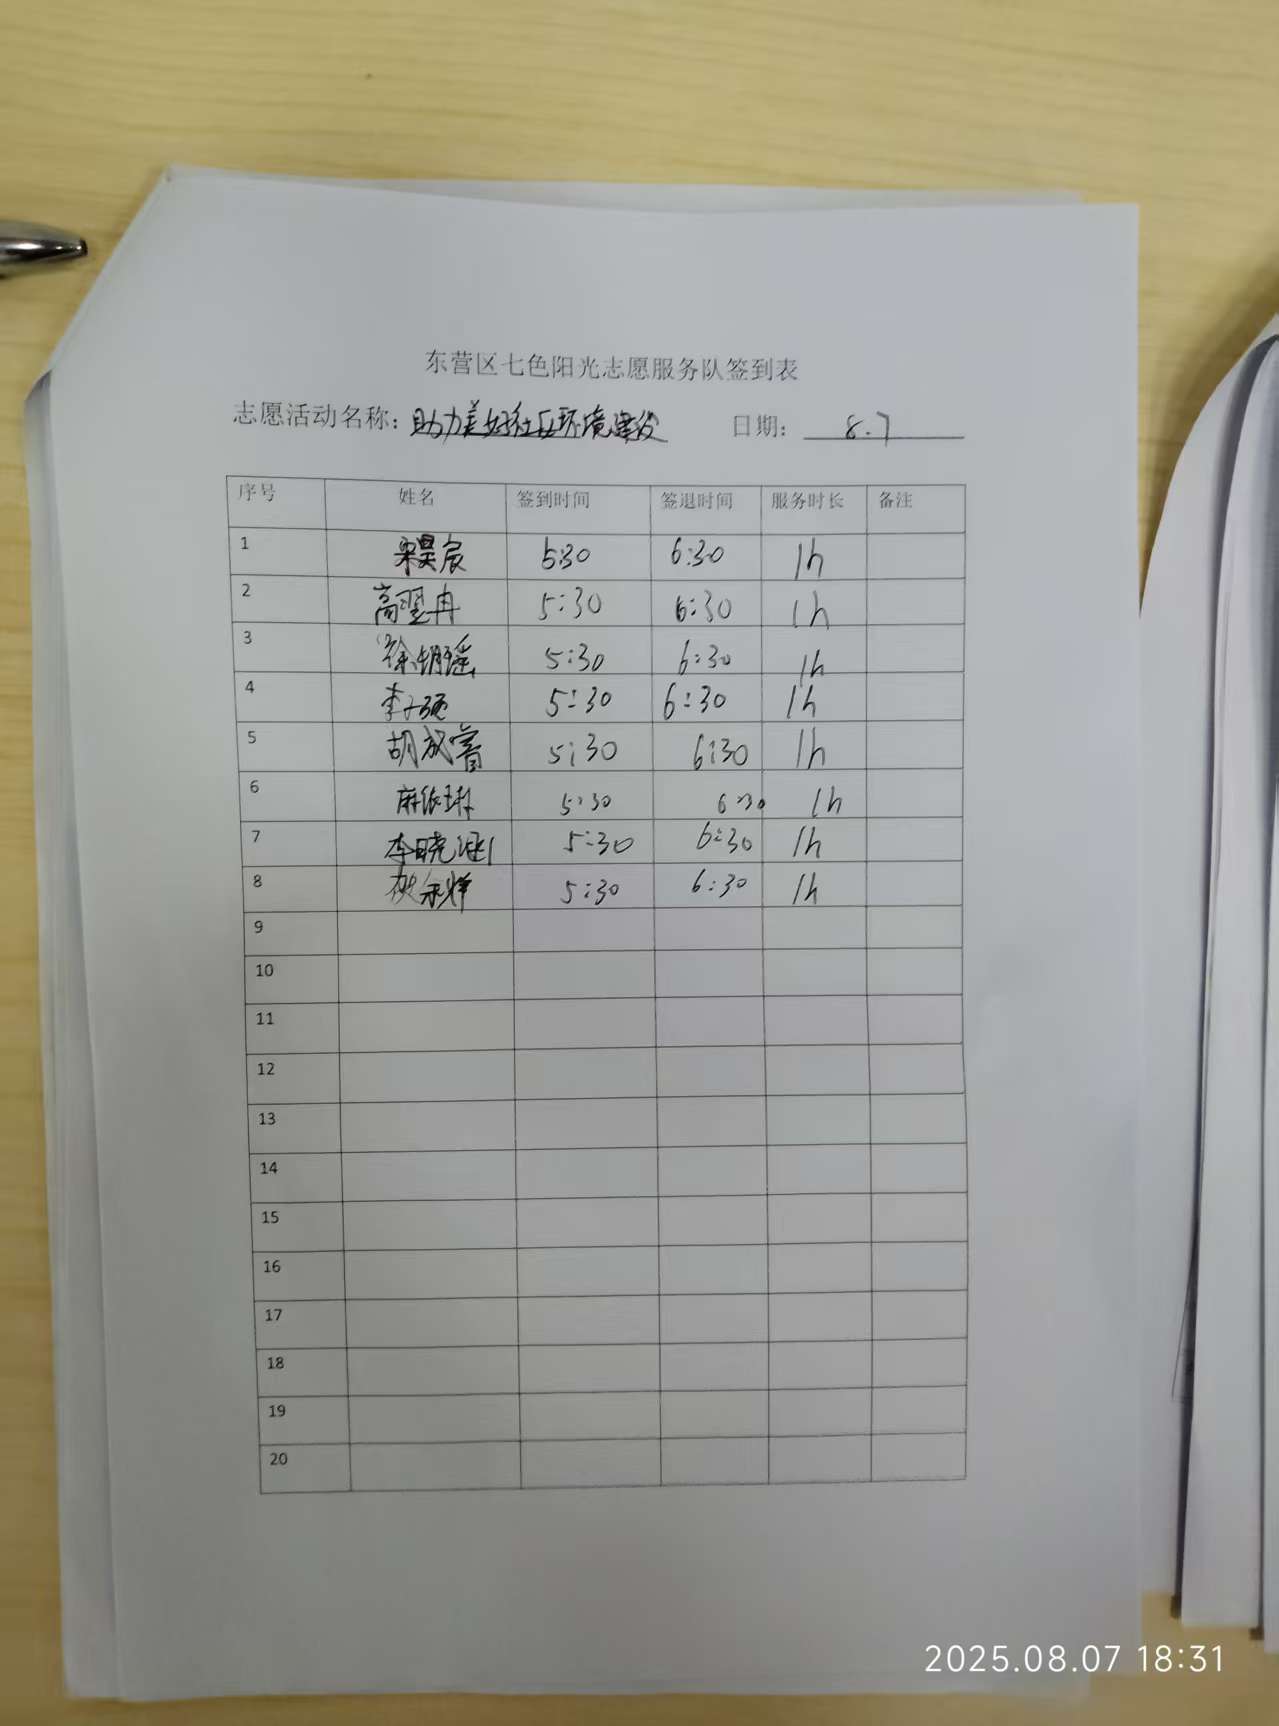 东营区七色阳光志愿服务队签到表
志愿活动名称：助力美好社区环境建设 日期：8.7
序号 姓名 签到时间 签退时间 服务时长 备注
1 宋昊宸 5:30 6:30 1h
2 高翌冉 5:30 6:30 1h
3 徐 瑶 5:30 6:30 1h
4 李子硕 5:30 6:30 1h
5 胡 睿 5:30 6:30 1h
6 麻依琳 5:30 6:30 1h
7 李晓 5:30 6:30 1h
8 5:30 6:30 1h
9
10
11
12
13
14
15
16
17
18
19
20
2025.08.07 18:31